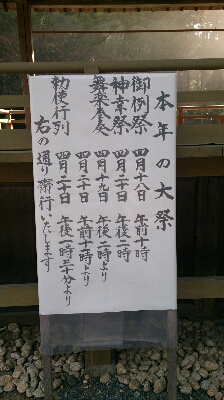 本年の大祭
御例祭 四月十八日 午前十時
神幸祭 四月二十日 午後二時
舞楽奉奏 四月十九日 午後二時より
四月二十日 午前十時より
勅使行列 四月二十日 午後一時三十分より
右の通り斎行いたします